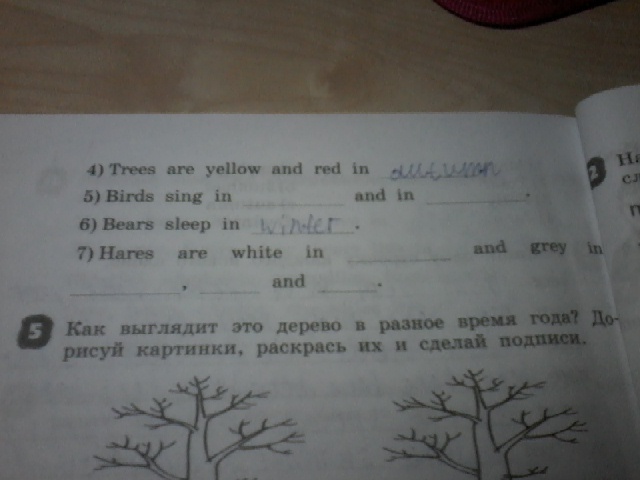 4) Trees are yellow and red in autumn
5) Birds sing in ________ and in ________.
6) Bears sleep in winter.
7) Hares are white in ________ and grey in
________, ________ and ________.
5 Как выглядит это дерево в разное время года? До-
рисуй картинки, раскрась их и сделай подписи.
2